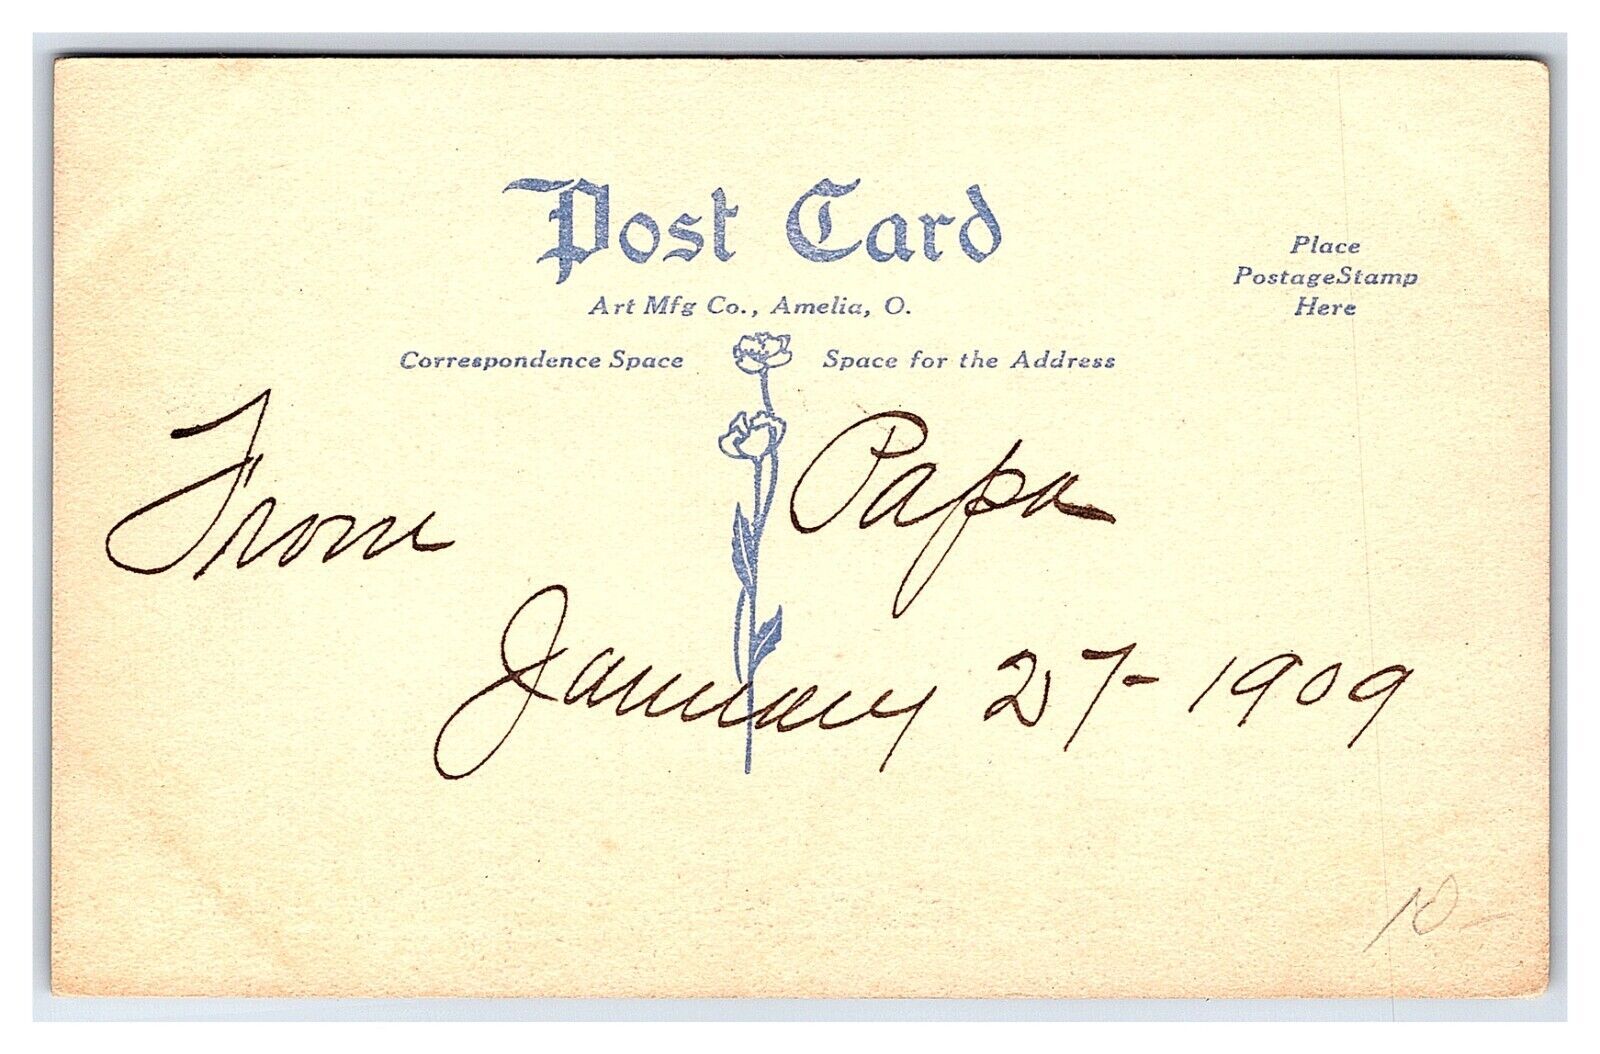 Post Card
Art Mfg Co., Amelia, O.
Place
Postage Stamp
Here
Correspondence Space
Space for the Address
From Papa
January 27 - 1909
10-